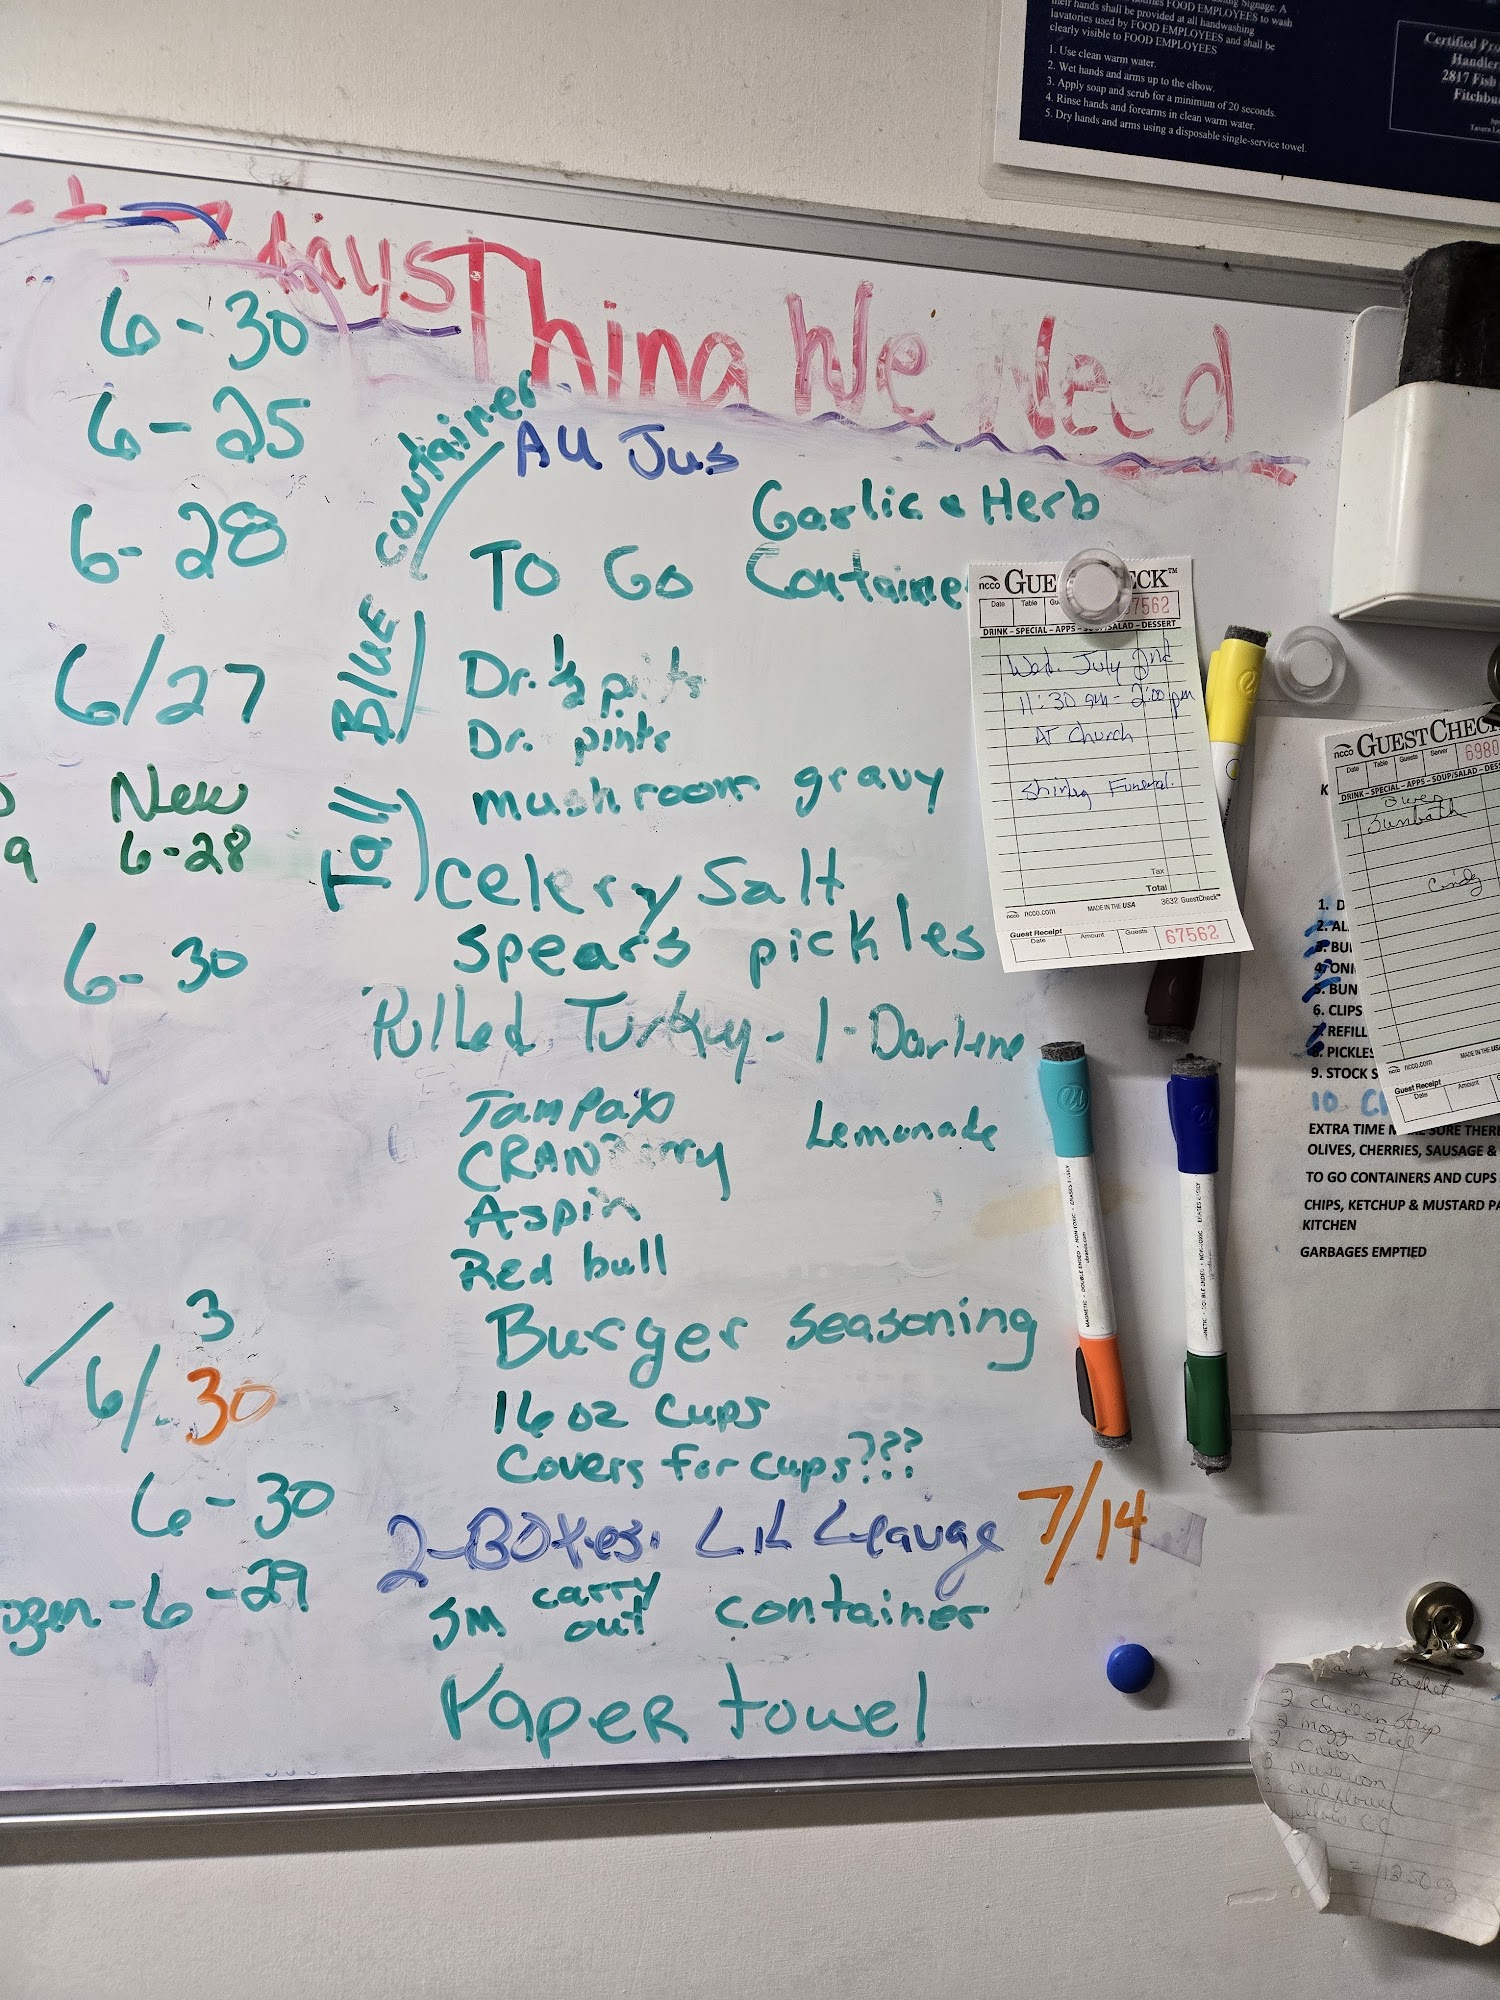 lavatories used by FOOD EMPLOYEES and shall be
clearly visible to FOOD EMPLOYEES
1. Use clean warm water.
2. Wet hands and arms up to the elbow.
3. Apply soap and scrub for a minimum of 20 seconds.
4. Rinse hands and forearms in clean warm water.
5. Dry hands and arms using a disposable single-service towel.
Certified
Handler
2817 Fish
days
Thing We Need
6-30
6-25
6-28
6/27
New
6-28
6-30
3
6/30
6-30
-6-29
Tall BLUE container
Au Jus
Garlic & Herb
To Go Container
Dr. 1/2 pints
Dr. pints
mushroom gravy
celery Salt
spears pickles
Pulled Turkey - 1 - Darlene
Tampax
CRANberry
Lemonade
Aspin
Red bull
Burger seasoning
16 oz cups
Covers for cups???
2-Boxes. Lil Leauge 7/14
SM carry out container
Paper towel
ncco GUESTCHECK™
Date Table 67562
DRINK – SPECIAL – APPS – SOUP/SALAD – DESSERT
Wed. July 2nd
11:30 am - 2:00 pm
At Church
Funeral.
Tax
Total
ncco ncco.com MADE IN THE USA 3632 GuestCheck™
Guest Receipt
Date Amount Guests 67562
ncco GUESTCHECK
Date Table Guests Server 6980
DRINK – SPECIAL – APPS – SOUP/SALAD – DES
ncco ncco.com MADE IN THE USA
Guest Receipt
Date Amount
1. D
2. AL
3. BU
4. ONI
5. BUN
6. CLIPS
7. REFILL
8. PICKLES
9. STOCK S
10
EXTRA TIME MAKE SURE THERE
OLIVES, CHERRIES, SAUSAGE &
TO GO CONTAINERS AND CUPS
CHIPS, KETCHUP & MUSTARD PA
KITCHEN
GARBAGES EMPTIED
Basket
2 chicken strip
2 mozz stick
2 onion
3 mushroom
3 cauliflower